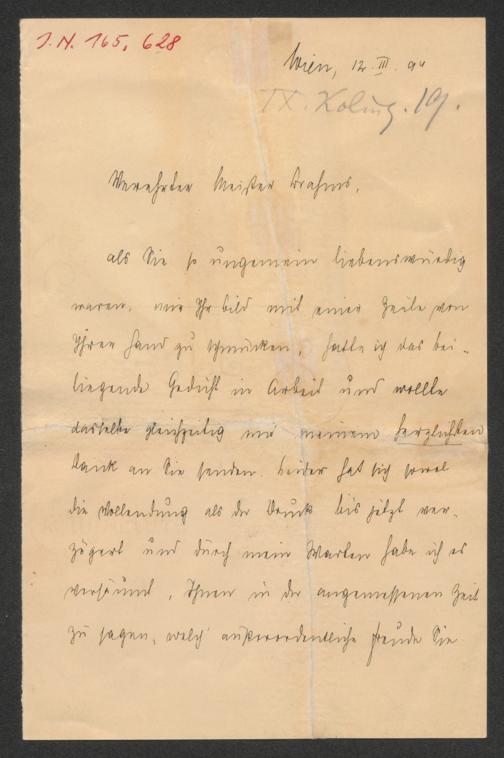 J.N. 165,628
Wien, 12. III. 94
IX. Koling. 19.
Verehrter Meister Brahms,
als Sie so ungemein liebenswürdig
waren, mir Ihr Bild mit einer Zeile von
Ihrer Hand zu schmücken, hatte ich das bei-
liegende Gedicht in Arbeit und wollte
dasselbe gleichzeitig mit meinem herzlichsten
Dank an Sie senden. Leider hat sich sowol
die Vollendung als der Druck bis jetzt ver-
zögert und durch mein Warten habe ich es
versäumt, Ihnen in der angemessenen Zeit
zu sagen, welch' außerordentliche Freude Sie